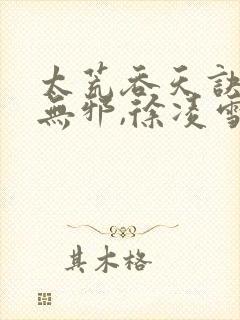 太荒吞天訣
無邪,徐淩雪
其木格